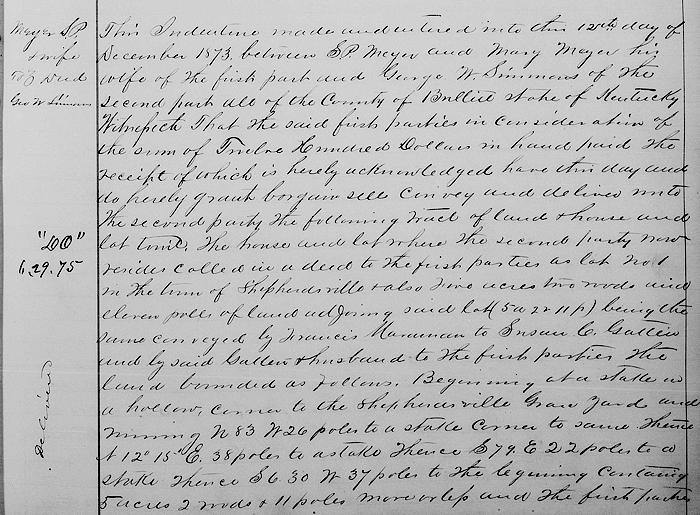 Meyer S.P.
& wife
To } Deed
Geo W Simmons
"LO"
6.29.75
Delivered
This Indenture made and entered into this 12th day of
December 1873, between S.P. Meyer and Mary Meyer his
wife of the first part and George W. Simmons of the
second part all of the County of Bullitt state of Kentucky
Witnesseth That the said first parties in consideration of
the sum of Twelve Hundred Dollars in hand paid the
receipt of which is herely acknowledged have this day and
do herely grant bargain sell Convey and deliver unto
the second party the following tract of land & house and
lot towit. The house and lot where the second party now
resides called in a deed to the first parties as lot No 1
in the town of Shepherdsville & also five acres two rods and
eleven poll of land adjoing said lot (5a 2r 11p) being the
same conveyed by Francis to Susan C. Gatten
and by said Gatten & husband to the first parties the
land bounded as follows. Beginning at a stake in
a hollow, corner to the Shepherdsville Grave Yard and
running N 83 W 26 poles to a stake corner to same Thence
N 12° 15' E. 38 poles to a stake Thence S 79. E 22 poles to a
stake Thence S 6.30 W 37 poles to the begining Containing
5 acres 2 rods & 11 poles more or less and the first parties